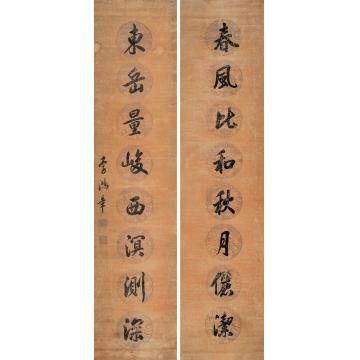 春風比和秋月儷潔
東岳量峻西溟測深
李鴻章